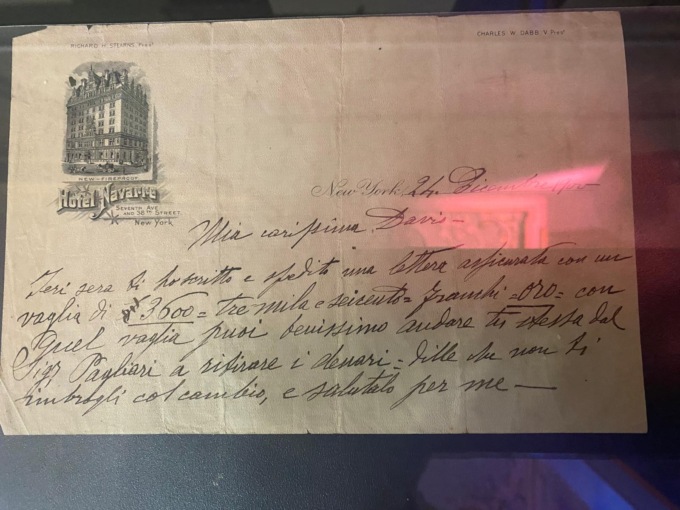 RICHARD H. STEARNS, Prest
CHARLES W. DABB, V. Prest
NEW - FIREPROOF
Hotel Navarre
SEVENTH AVE
AND 38TH STREET
New York
New York, 24 Dicembre
Mia carissima Davis-
Ieri sera ti ho scritto e spedito una lettera assicurata con un
vaglia di 3600= tre mila e seicento= franchi =oro= con
quel vaglia puoi benissimo andare tu stessa dal
Sigr Pagliari a ritirare i denari = dille che non ti
imbrogli col cambio, e salutalo per me —